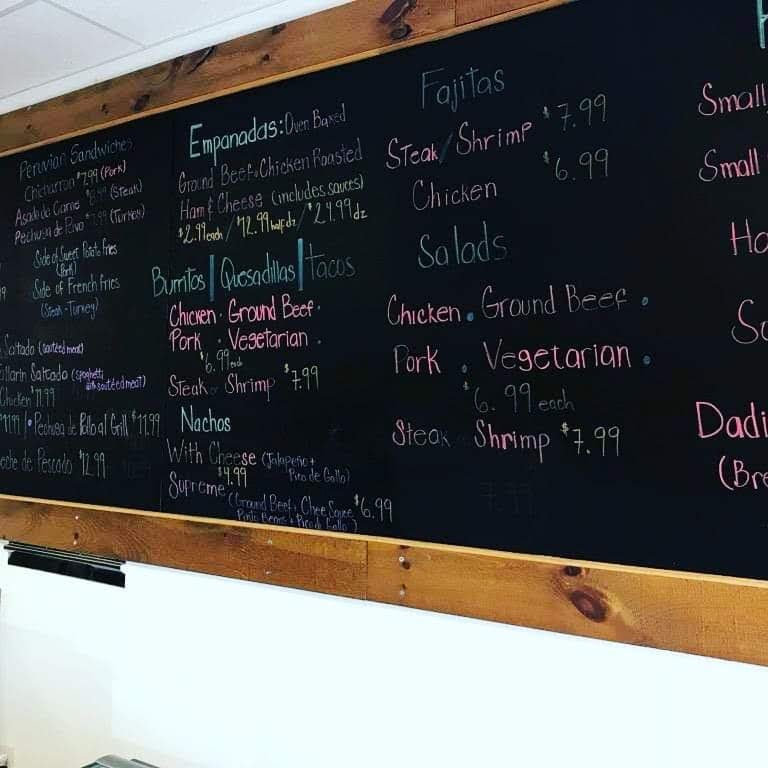 Peruvian Sandwiches
Chicharron $7.99 (Pork)
Asado de Carne (Steak)
Pechuga de Pavo $7.99 (Turkey)
Side of Sweet Potato fries
(Pork)
Side of French fries
(Steak-Turkey)
Saltado (sautéed meat)
Saltado (spaghetti
sautéed meat)
Chicken 11.99
11.99 / Pechuga de Pollo al Grill $11.99
eche de Pescado $12.99
Empanadas: Oven Baked
Ground Beef Chicken Roasted
Ham & Cheese (includes sauces)
$2.99 each / $12.99 half dz / $24.99 dz
Burritos | Quesadillas | Tacos
Chicken . Ground Beef .
Pork . Vegetarian .
$6.99 each
Steak or Shrimp $7.99
Nachos
With Cheese (Jalapeño +
$4.99 Pico de Gallo)
Supreme (Ground Beef, Chee Sauce $6.99
Pinto Beans + Pico de Gallo)
Fajitas
Steak / Shrimp $7.99
Chicken $6.99
Salads
Chicken . Ground Beef .
Pork . Vegetarian .
$6.99 each
Steak Shrimp $7.99
7.99
Small
Small
Ho
Dadi
(Bre